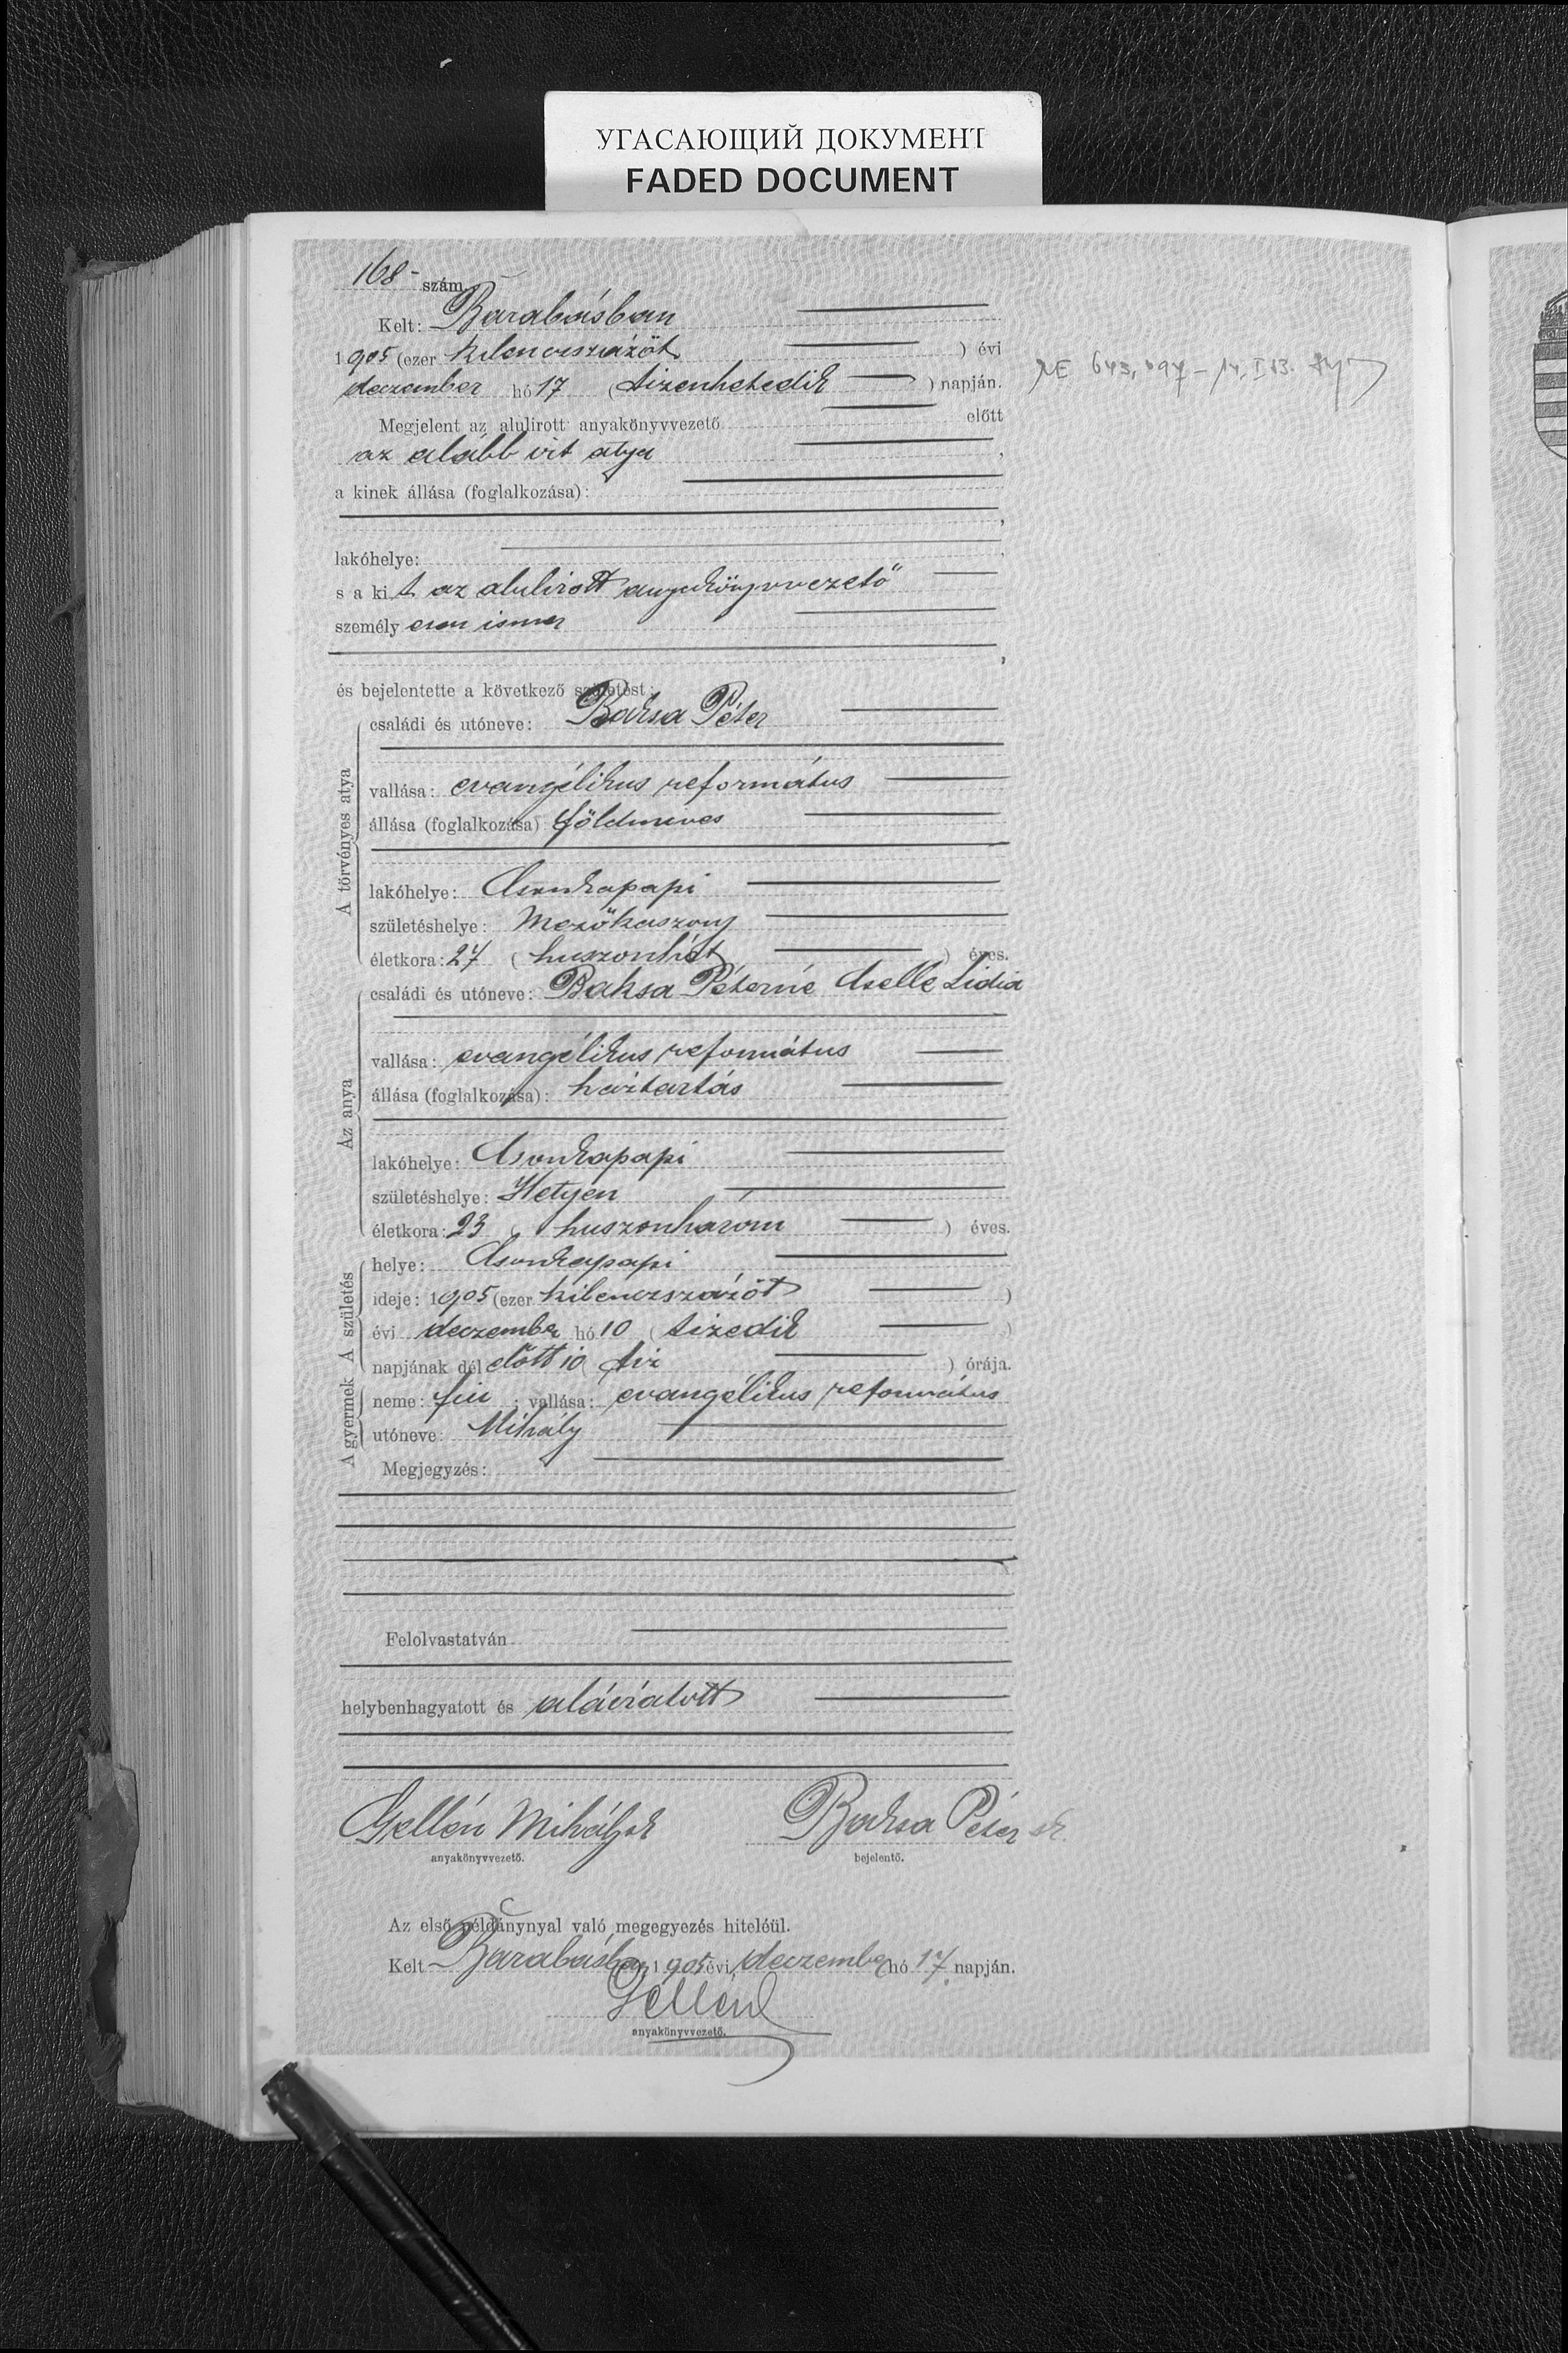 УГАСАЮЩИЙ ДОКУМЕНТ
FADED DOCUMENT
168 szám.
Kelt: Barabásban
1905 (ezer kilenczszázöt ) évi
deczember hó 17 (tizenhetedik ) napján.
Megjelent az alulirott anyakönyvvezető előtt
az alább irt atya ,
a kinek állása (foglalkozása):
,
lakóhelye: ,
s a kit az alulirott anyakönyvvezető
személyesen ismer
,
és bejelentette a következő születést:
A törvényes atya
családi és utóneve: Baksa Péter
vallása: evangélikus református
állása (foglalkozása) földmives
lakóhelye: Csonkapapi
születéshelye: Mezőkaszony
életkora: 27 (huszonhét ) éves.
Az anya
családi és utóneve: Baksa Péterné Cselle Lidia
vallása: evangélikus református
állása (foglalkozása): háztartás
lakóhelye: Csonkapapi
születéshelye: Hetyen
életkora: 23 (huszonhárom ) éves.
A gyermek A születés
helye: Csonkapapi
ideje: 1905 (ezer kilenczszázöt )
évi deczember hó 10 (tizedik )
napjának dél előtt 10 (tiz ) órája.
neme: fiu ; vallása: evangélikus református
utóneve: Mihály
Megjegyzés:
Felolvastatván
helybenhagyatott és aláíratott
Gellén Mihály sk Baksa Péter sk.
anyakönyvvezető. bejelentő.
Az első példánynyal való megegyezés hiteléül.
Kelt Barabásban 1905 évi deczember hó 17 napján.
Gellén
anyakönyvvezető.